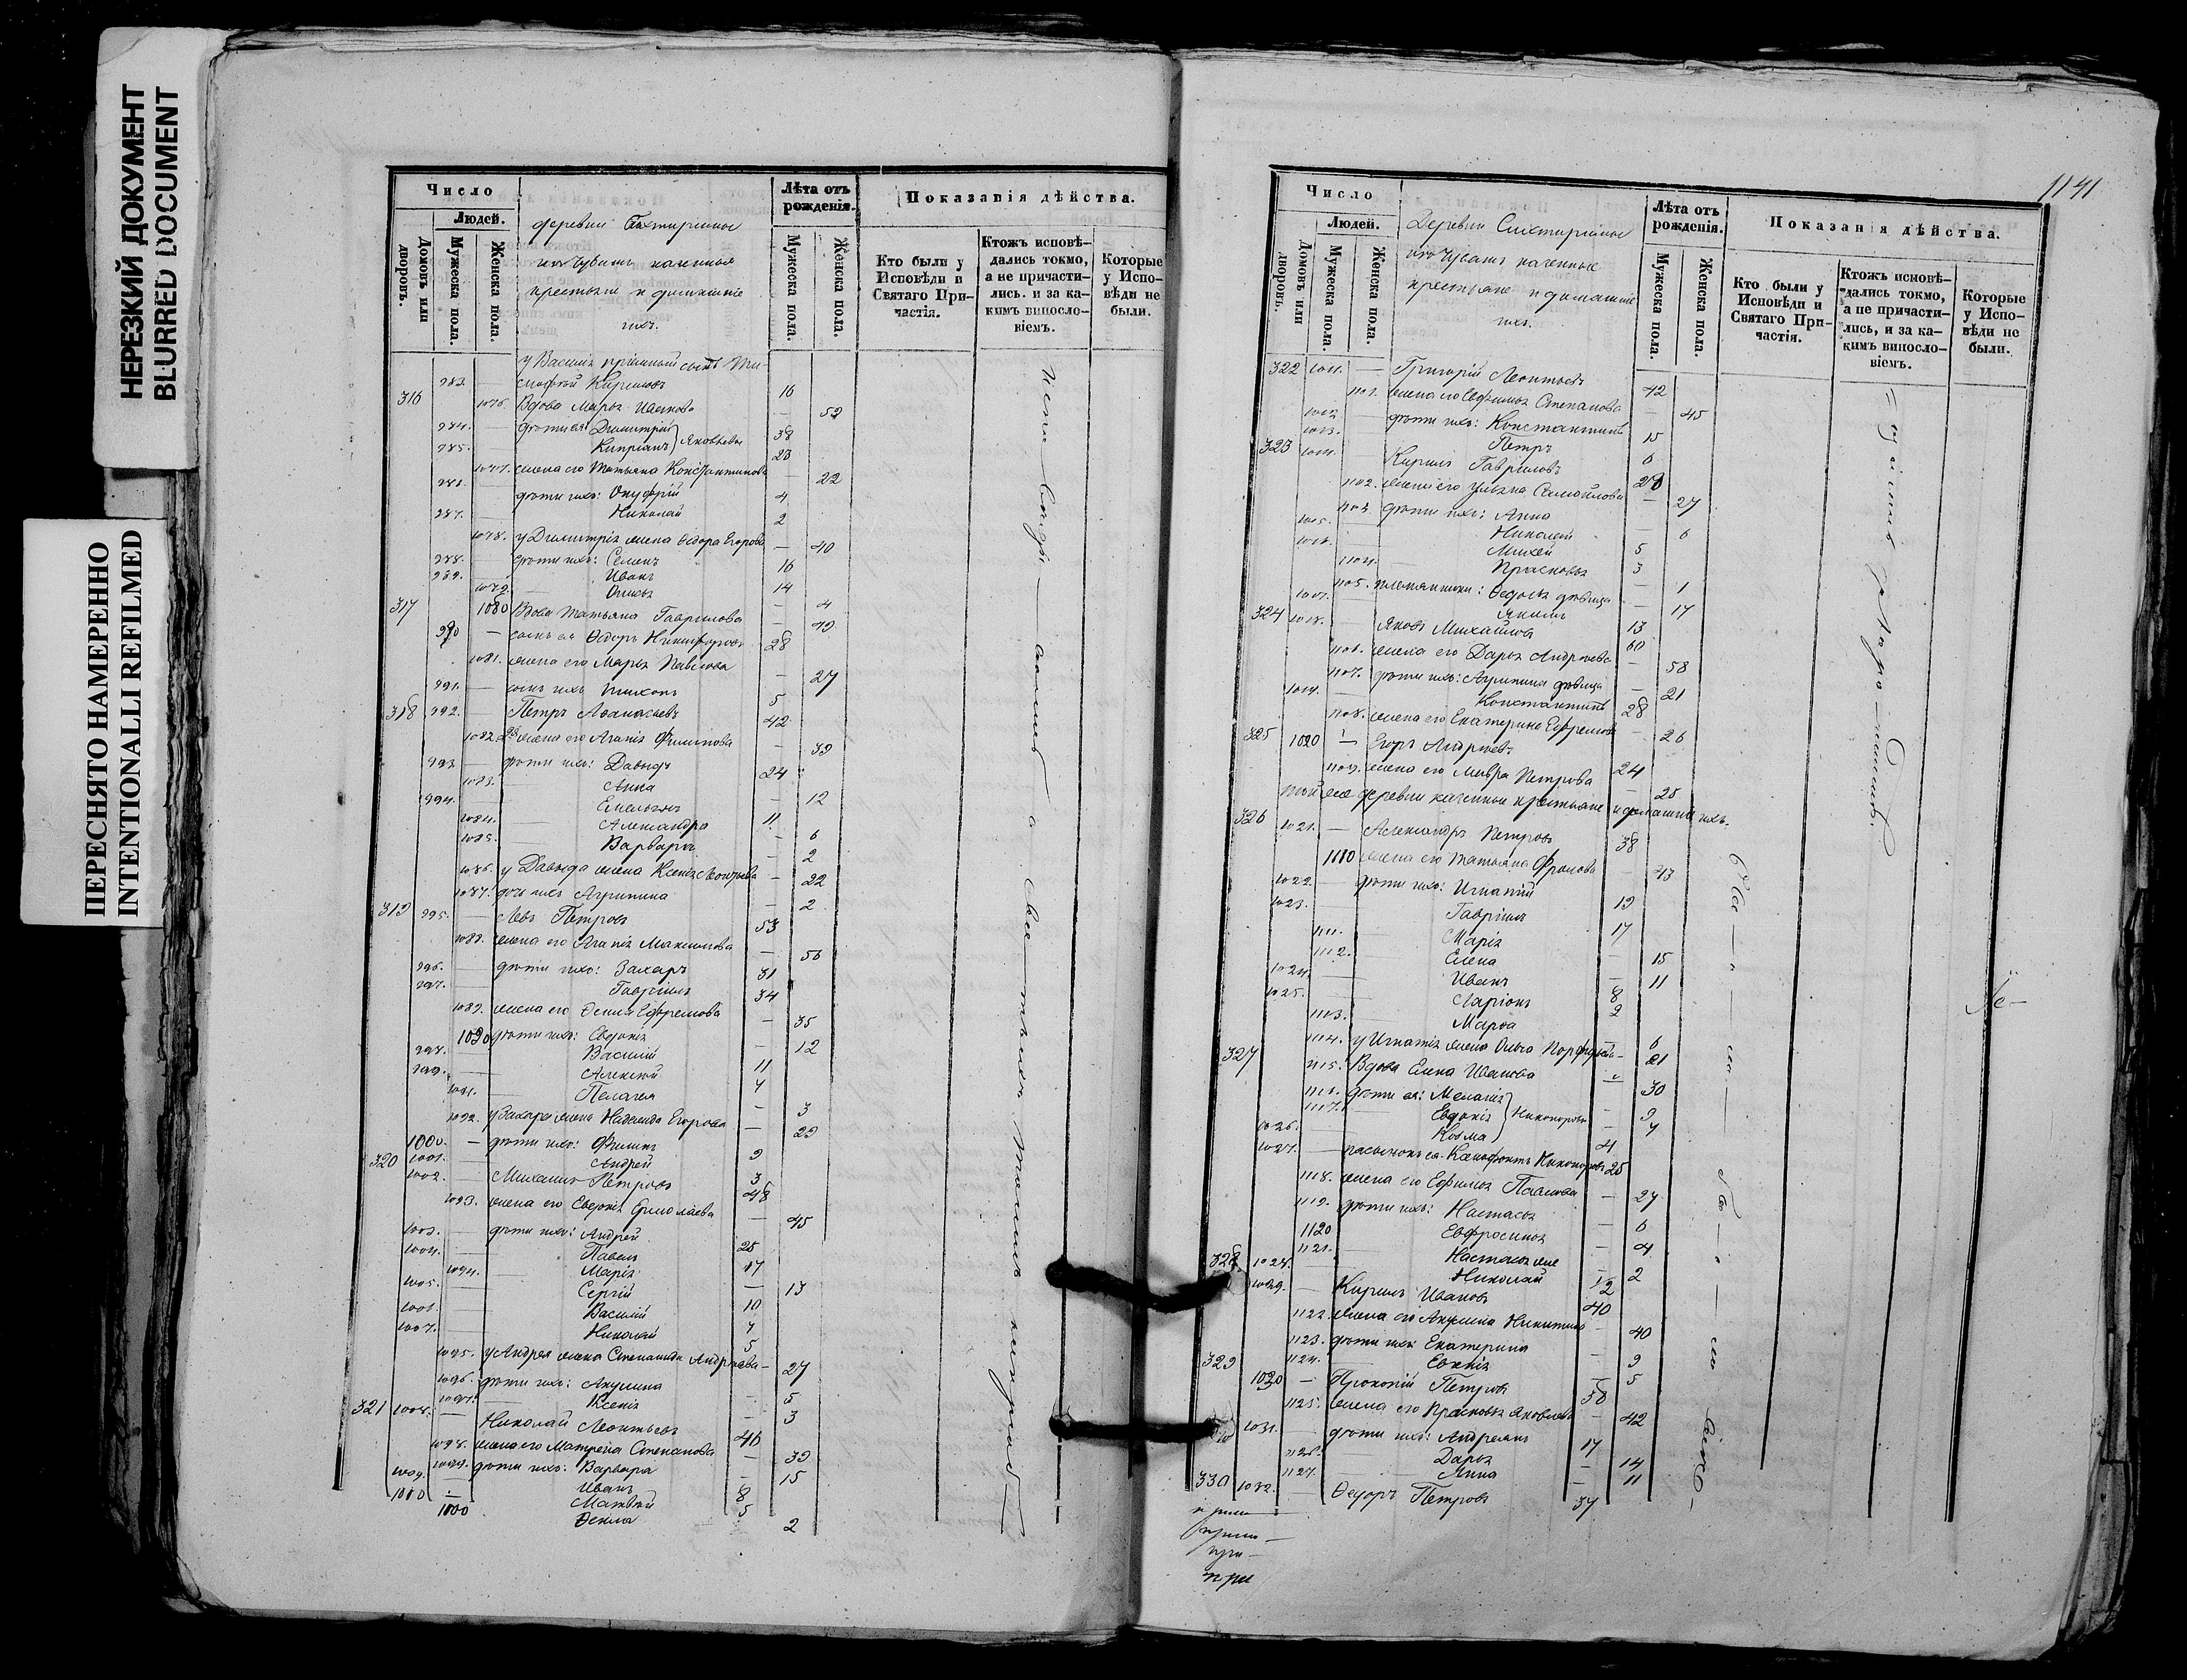 НЕРЕЗКИЙ ДОКУМЕНТ
BLURRED DOCUMENT
ПЕРЕСНЯТО НАМЕРЕННО
INTENTIONALLI REFILMED
Число
Людей.
Домовъ или дворовъ.
Мужеска пола.
Женска пола.
деревни
казенныя
крестьяне и домашніе
ихъ.
Лѣта отъ рожденія.
Мужеска пола.
Женска пола.
Показанія дѣйства.
Кто были у Исповѣди и Святаго Причастія.
Ктожъ исповѣдались токмо, а не причастились. и за какимъ винословіемъ.
Которые у Исповѣди не были.
у Василія пріемный сынъ Ти-
983. — мофей Кириловъ 16
316 1076. Вдова Марья Иванова — 52
984. — дѣти ея Димитрій 38
985. Кипріанъ Яковлевы 23
1077. жена его Татьяна Константинова — 22
986. дѣти ихъ: Онуфрій 4
987. Николай 2
1078. у Димитрія жена Ѳедора Егорова — 40
988. дѣти ихъ: Семенъ 16
989. Иванъ 14
1079. — 4
317 1080 Вдова Татьяна Гаврилова — 49
990 — сынъ ея Ѳедоръ Никифоровъ 28
1081. жена его Марья Павлова — 27
991. — сынъ ихъ Тихонъ 5
318 992. Петръ Аѳанасьевъ 42
1082. жена его Агапія Филипова — 39
993 — дѣти ихъ: Давыдъ 24
1083. Анна — 12
994. Емельянъ 11
1084. Александра — 6
1085. Варвара — 2
1086. у Давыда жена Ксенія Леонтьева — 22
1087. дочь ихъ Агрипина — 2
319 995. — Левъ Петровъ 53
1088. жена его Агапія Максимова — 56
996. — дѣти ихъ: Захаръ 31
997. Гавріилъ 34
1089. жена его Ѳекла Ефремова — 35
1090 дѣти ихъ: Евдокія — 12
998. Василій 11
999. — Алексѣй 7
1091. Пелагея — 3
1092. у Захара жена Надежда Егорова — 29
1000. — дѣти ихъ: Филипъ 9
1001. Андрей 3
320 1002. — Михаилъ Петровъ 48
1093. жена его Евдокія Ермолаева — 45
1003. — дѣти ихъ: Андрей 25
1004. — Павелъ 17
1094. Марія — 13
1005. Сергій 10
1006. Василій 7
1007. Николай 5
1095. у Андрея жена Степанида Андреева — 27
1096. дѣти ихъ: Акулина — 5
1097. — Ксенія — 3
321 1008. — Николай Леонтьевъ 46
1098. жена его Матрена Степанова — 39
1099. дѣти ихъ: Варвара — 15
1009. — Иванъ 8
1010 — Матвѣй 5
1100 Ѳекла 2
1141
Число
Людей.
Домовъ или дворовъ.
Мужеска пола.
Женска пола.
Деревни
казенные
крестьяне и домашніе
ихъ.
Лѣта отъ рожденія.
Мужеска пола.
Женска пола.
Показанія дѣйства.
Кто были у Исповѣди и Святаго Причастія.
Ктожъ исповѣдались токмо, а не причастились, и за какимъ винословіемъ.
Которые у Исповѣди не были.
322 1011. — Григорій Леонтьевъ 42
1101. жена его Евфимія Степанова — 45
1012. дѣти ихъ: Константинъ 15
1013. Петръ 6
323 1014. — Кирилъ Гавриловъ 28
1102. жена его Ульяна Самойлова — 27
1103. дѣти ихъ: Анна — 6
1015. Николай 5
1016. Михей 3
1104. Прасковья — 1
1105. племянники: Ѳедосья дѣвица — 17
1017. Якимъ 13
324 1018. — Яковъ Михайловъ 60
1106. жена его Дарья Андреева — 58
1107. дѣти ихъ: Агрипина дѣвица — 21
1019. — Константинъ 28
1108. жена его Екатерина Ефремова — 26
325 1020 — Егоръ Андреевъ 24
1109. жена его Мавра Петрова — 25
той же деревни казенные крестьяне и домашніе ихъ.
326 1021. — Александръ Петровъ 38
1110 жена его Татьяна Фролова — 43
1022. — дѣти ихъ: Игнатій 19
1023. Гавріилъ 17
1111. Марія — 15
1112. Елена — 11
1024. Иванъ 8
1025. Ларіонъ 2
1113. Марѳа — 6
1114. у Игнатія жена Ольга — 21
327 1115. Вдова Елена Иванова — 30
1116. дѣти ея: Меланія — 9
1117. Евдокія Никоноровы — 7
1026. Козма 4
1027. — пасынокъ ея Ксенофонтъ Никоноровъ 25
1118. жена его Ефимія Павлова — 27
1119. дѣти ихъ: Настасья — 6
1120 Евфросинья — 4
1121. Настасья же — 2
1028. Николай
328 1029. — Кирилъ Ивановъ 40
1122. жена его Акулина Никитина — 40
1123. дѣти ихъ Екатерина — 9
1124. — 5
329 1030 — Прокопій Петровъ 38
1125. жена его Прасковья Яковлева — 42
1031. — дѣти ихъ: Андреянъ 17
1126. Дарья — 14
1127. Анна — 11
330 1032. — Ѳедоръ Петровъ 37
при